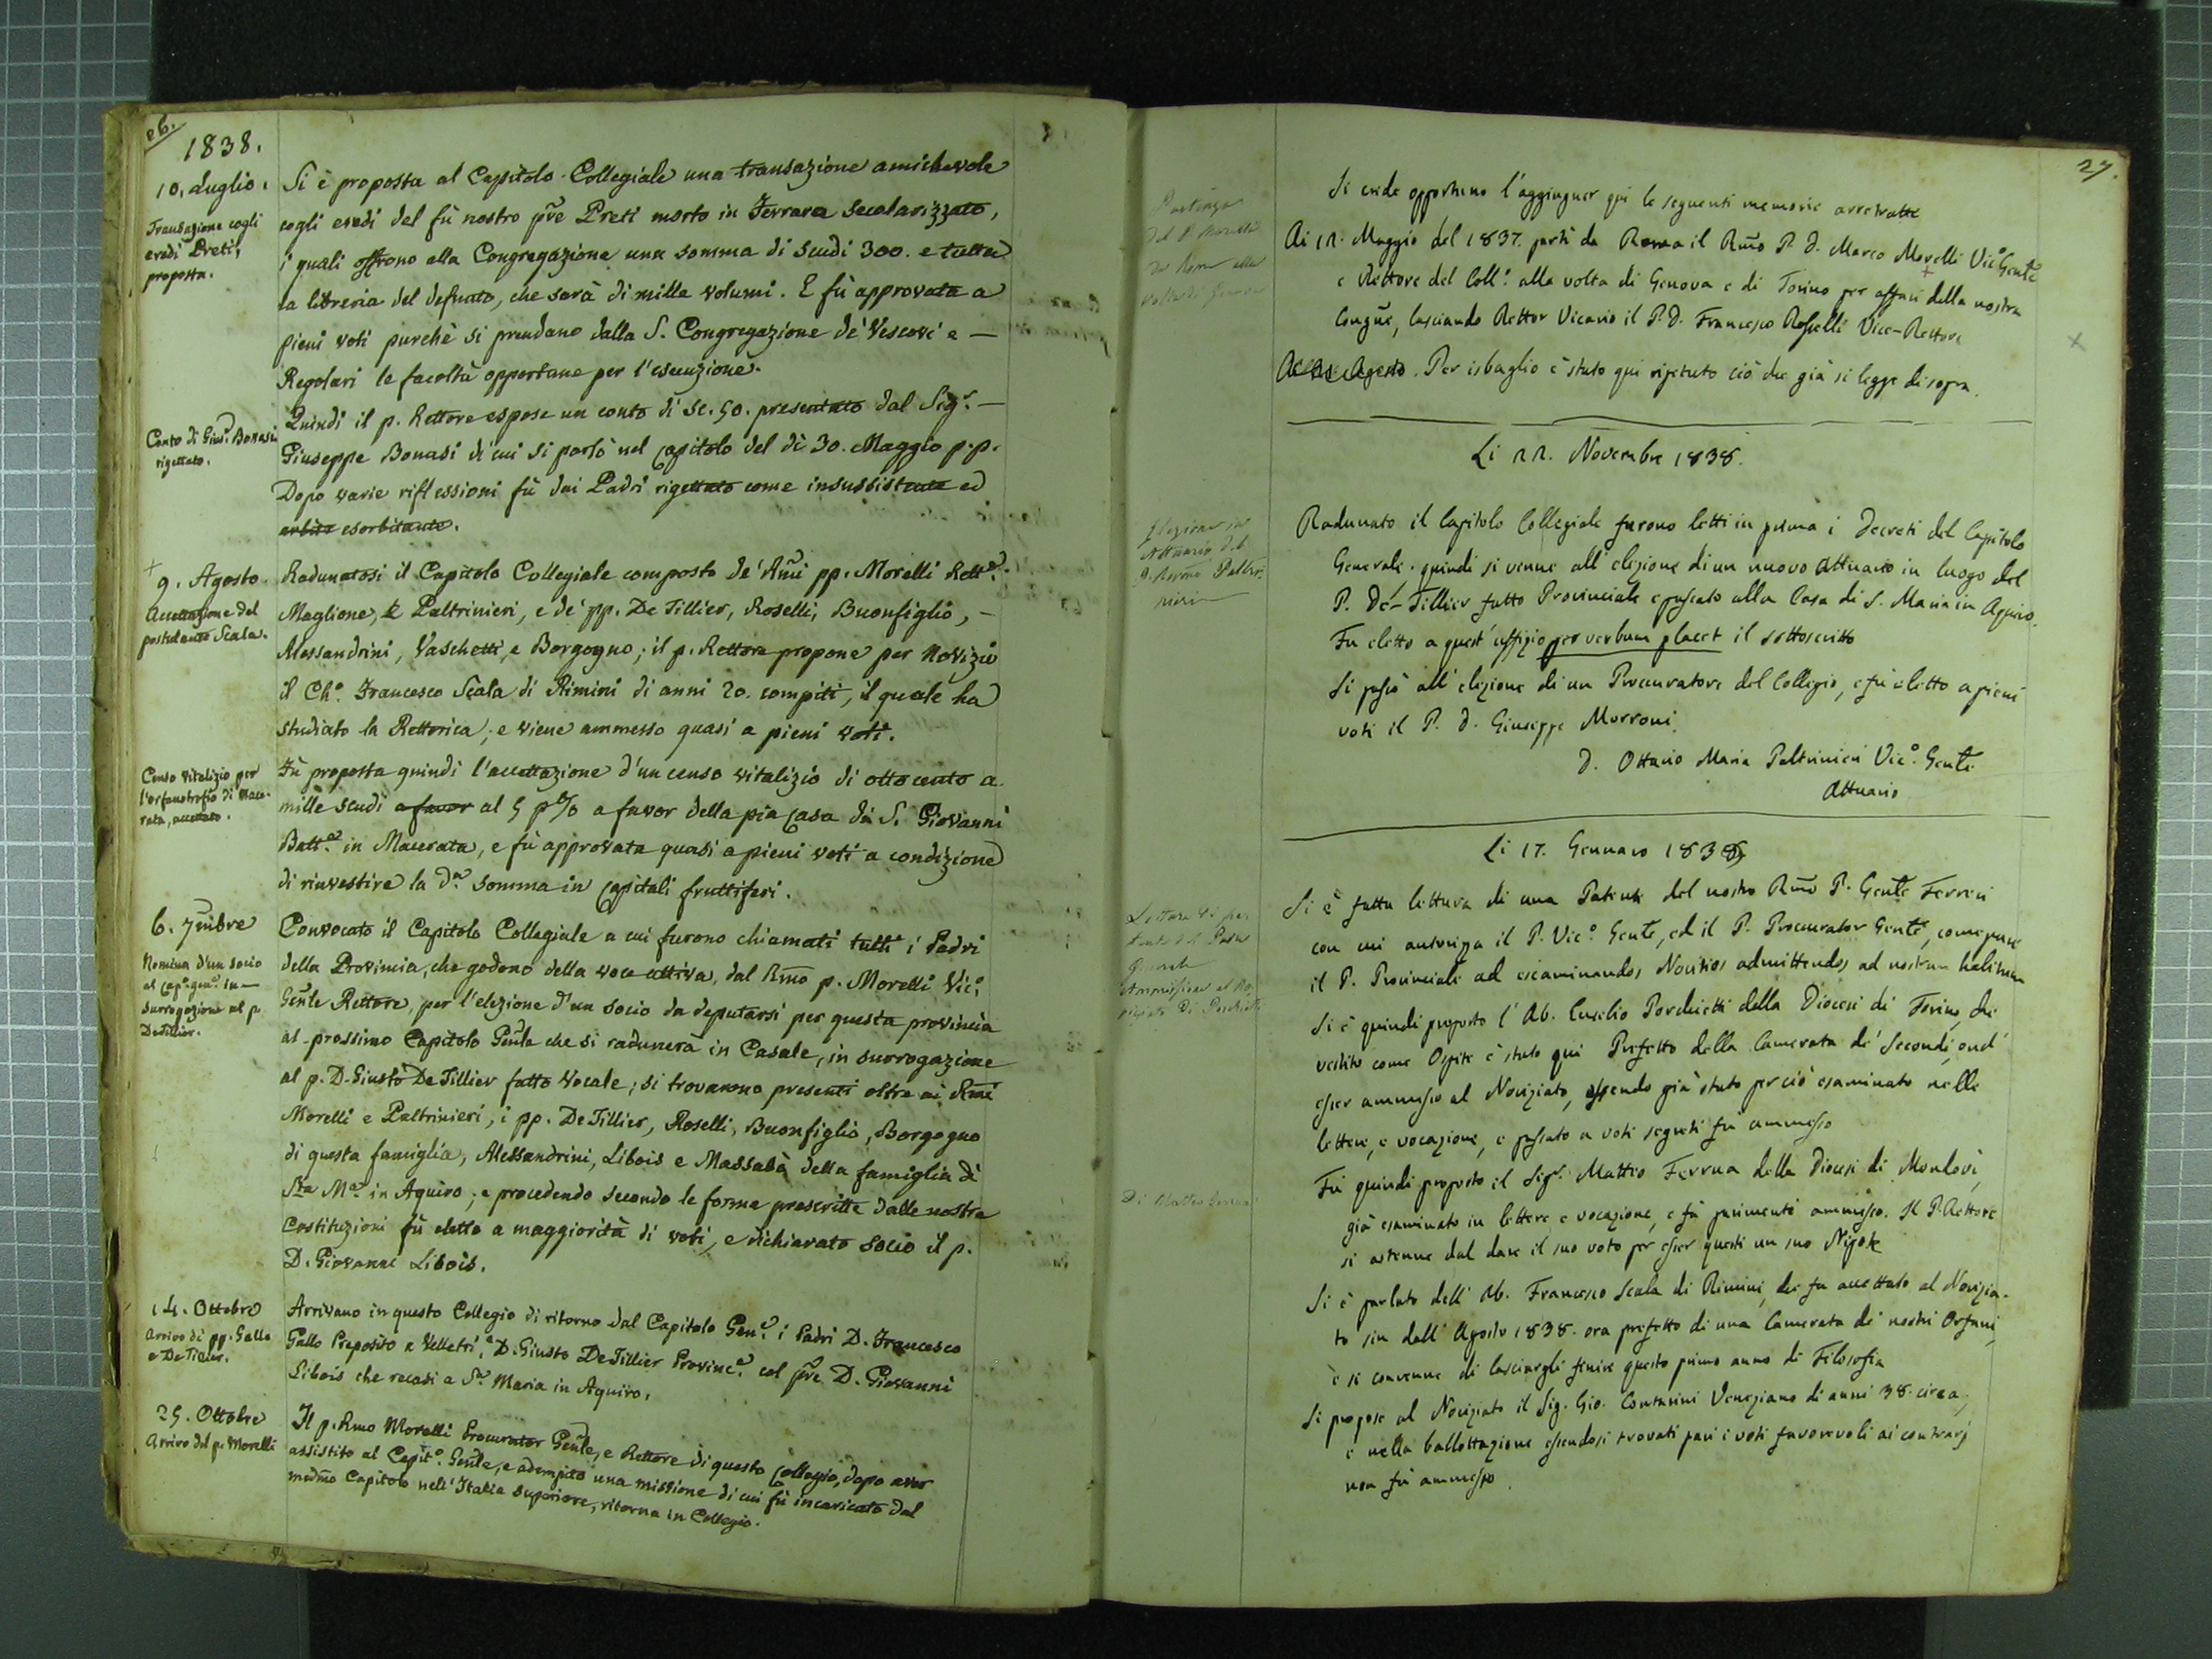 26.
1838.
10. Luglio.
Transazione cogli
eredi Preti,
proposta.
Si è proposta al Capitolo Collegiale una transazione amichevole
cogli eredi del fù nostro pre Preti morto in Ferrara secolarizzato,
i quali offrono alla Congregazione una somma di scudi 300. e tutta
la libreria del defunto, che sarà di mille volumi. E fù approvata a
pieni voti purchè si prendano dalla S. Congregazione de' Vescovi e —
Regolari le facoltà opportune per l'esecuzione.
Conto di Gius. Bonasi
rigettato.
Quindi il p. Rettore espose un conto di sc. 50. presentato dal Sigr. —
Giuseppe Bonasi di cui si parlò nel capitolo del dì 30. Maggio p.p.
Dopo varie riflessioni fù dai Padri rigettato come insussistente ed
esorbitante.
+
9. Agosto
Accettazione del
postulante Scala.
Radunatosi il Capitolo Collegiale composto de' Rmi pp. Morelli Rette.
Maglione, Paltrinieri, e de' pp. De Tillier, Roselli, Buonfiglio, —
Alessandrini, Vaschetti, e Borgogno; il p. Rettore propone per Novizio
il Cho. Francesco Scala di Rimini di anni 20. compiti, il quale ha
studiato la Rettorica; e viene ammesso quasi a pieni voti.
Censo vitalizio per
l'orfanotrofio di Mace-
rata, accettato.
Fù proposta quindi l'accettazione d'un censo vitalizio di ottocento a
mille scudi a favor al 5 p% a favor della pia casa di S. Giovanni
Batta. in Macerata, e fù approvata quasi a pieni voti a condizione
di rinvestire la da. somma in capitali fruttiferi.
6. 7mbre
Nomina d'un socio
al capo. genle. in —
surrogazione al p.
De Tillier.
Convocato il Capitolo Collegiale a cui furono chiamati tutti i Padri
della Provincia, che godono della voce attiva, dal Rmo p. Morelli Vico.
Genle Rettore, per l'elezione d'un socio da deputarsi per questa provincia
al prossimo Capitolo Genle che si radunerà in Casale, in surrogazione
al p. D. Giusto De Tillier fatto Vocale; si trovarono presenti oltre ai Rmi
Morelli e Paltrinieri, i pp. De Tillier, Roselli, Buonfiglio, Borgogno
di questa famiglia, Alessandrini, Libois e Massabà della famiglia di
Sta Ma. in Aquiro; e procedendo secondo le forme prescritte dalle nostre
costituzioni fù eletto a maggiorità di voti, e dichiarato socio il p.
D. Giovanni Libois.
14. Ottobre
Arrivo di pp. Gallo
e De Tillier.
Arrivano in questo Collegio di ritorno dal Capitolo Gene. i Padri D. Francesco
Gallo Preposito a Velletri, e D. Giusto De Tillier Provinc. col pre D. Giovanni
Libois che recasi a Sa. Maria in Aquiro.
25. Ottobre
Arrivo del p. Morelli
Il p. Rmo Morelli Procurator Genle, e Rettore di questo collegio, dopo aver
assistito al Capit. Genle, e adempito una missione di cui fù incaricato dal
medmo Capitolo nell'Italia superiore, ritorna in Collegio.
27.
Partenza
del P. Morelli
da Roma alla
volta di Genova
Si crede opportuno l'aggiugner qui le seguenti memorie arretratte
Ai 12. Maggio del 1837. partì da Roma il Rmo P. D. Marco Morelli Vic. Genle
e Rettore del Coll. alla volta di Genova e di Torino per affari della nostra
Congne, lasciando Rettor Vicario il P. D. Francesco Roselli Vice-Rettore
Agosto. Per isbaglio è stato qui ripetuto ciò che già si legge di sopra.
Li 22. Novembre 1838.
Elezione in
Attuario del
P. Rmo Paltri-
nieri
Radunato il Capitolo Collegiale furono letti in prima i Decreti del Capitolo
Generale. quindi si venne all'elezione di un nuovo Attuario in luogo del
P. De-Tillier fatto Provinciale e passato alla Casa di S. Maria in Aquiro.
Fu eletto a quest'uffizio per verbum placet il sottoscritto
Si passò all'elezione di un Procuratore del Collegio, e fù eletto a pieni
voti il P. D. Giuseppe Morroni.
D. Ottavio Maria Paltrinieri Vic. Genle
Attuario
Li 17. Gennaro 1839
Lettura di pa-
tente del Padre
Generale
Ammissione al No-
viziato di Porchietti
Si è fatta lettura di una Patente del nostro Rmo P. Genle Ferreri
con cui autorizza il P. Vic. Genle, ed il P. Procurator Genle, come pure
il P. Provinciale ad examinandos Novitios admittendos ad nostrum habitum
Si è quindi proposto l'Ab. Lucilio Porchietti della Diocesi di Torino, che
vestito come Ospite è stato qui Prefetto della Camerata de' Secondi, ond'
esser ammesso al Noviziato, essendo già stato perciò esaminato nelle
lettere, e vocazione, e passato a voti segreti fù ammesso
Di Matteo Ferrua
Fù quindi proposto il Sigr. Matteo Ferrua della Diocesi di Mondovì,
già esaminato in lettere e vocazione, e fù parimenti ammesso. Il P. Rettore
si astenne dal dare il suo voto per esser questi un suo Nipote
Si è parlato dell'Ab. Francesco Scala di Rimini, che fu accettato al Novizia-
to sin dall'Agosto 1838. ora prefetto di una Camerata de' nostri Orfani,
e si convenne di lasciargli finire questo primo anno di Filosofia
Si propose al Noviziato il Sig. Gio. Contarini Veneziano di anni 38. circa;
e nella ballottazione essendosi trovati pari i voti favorevoli ai contrarj
non fù ammesso.